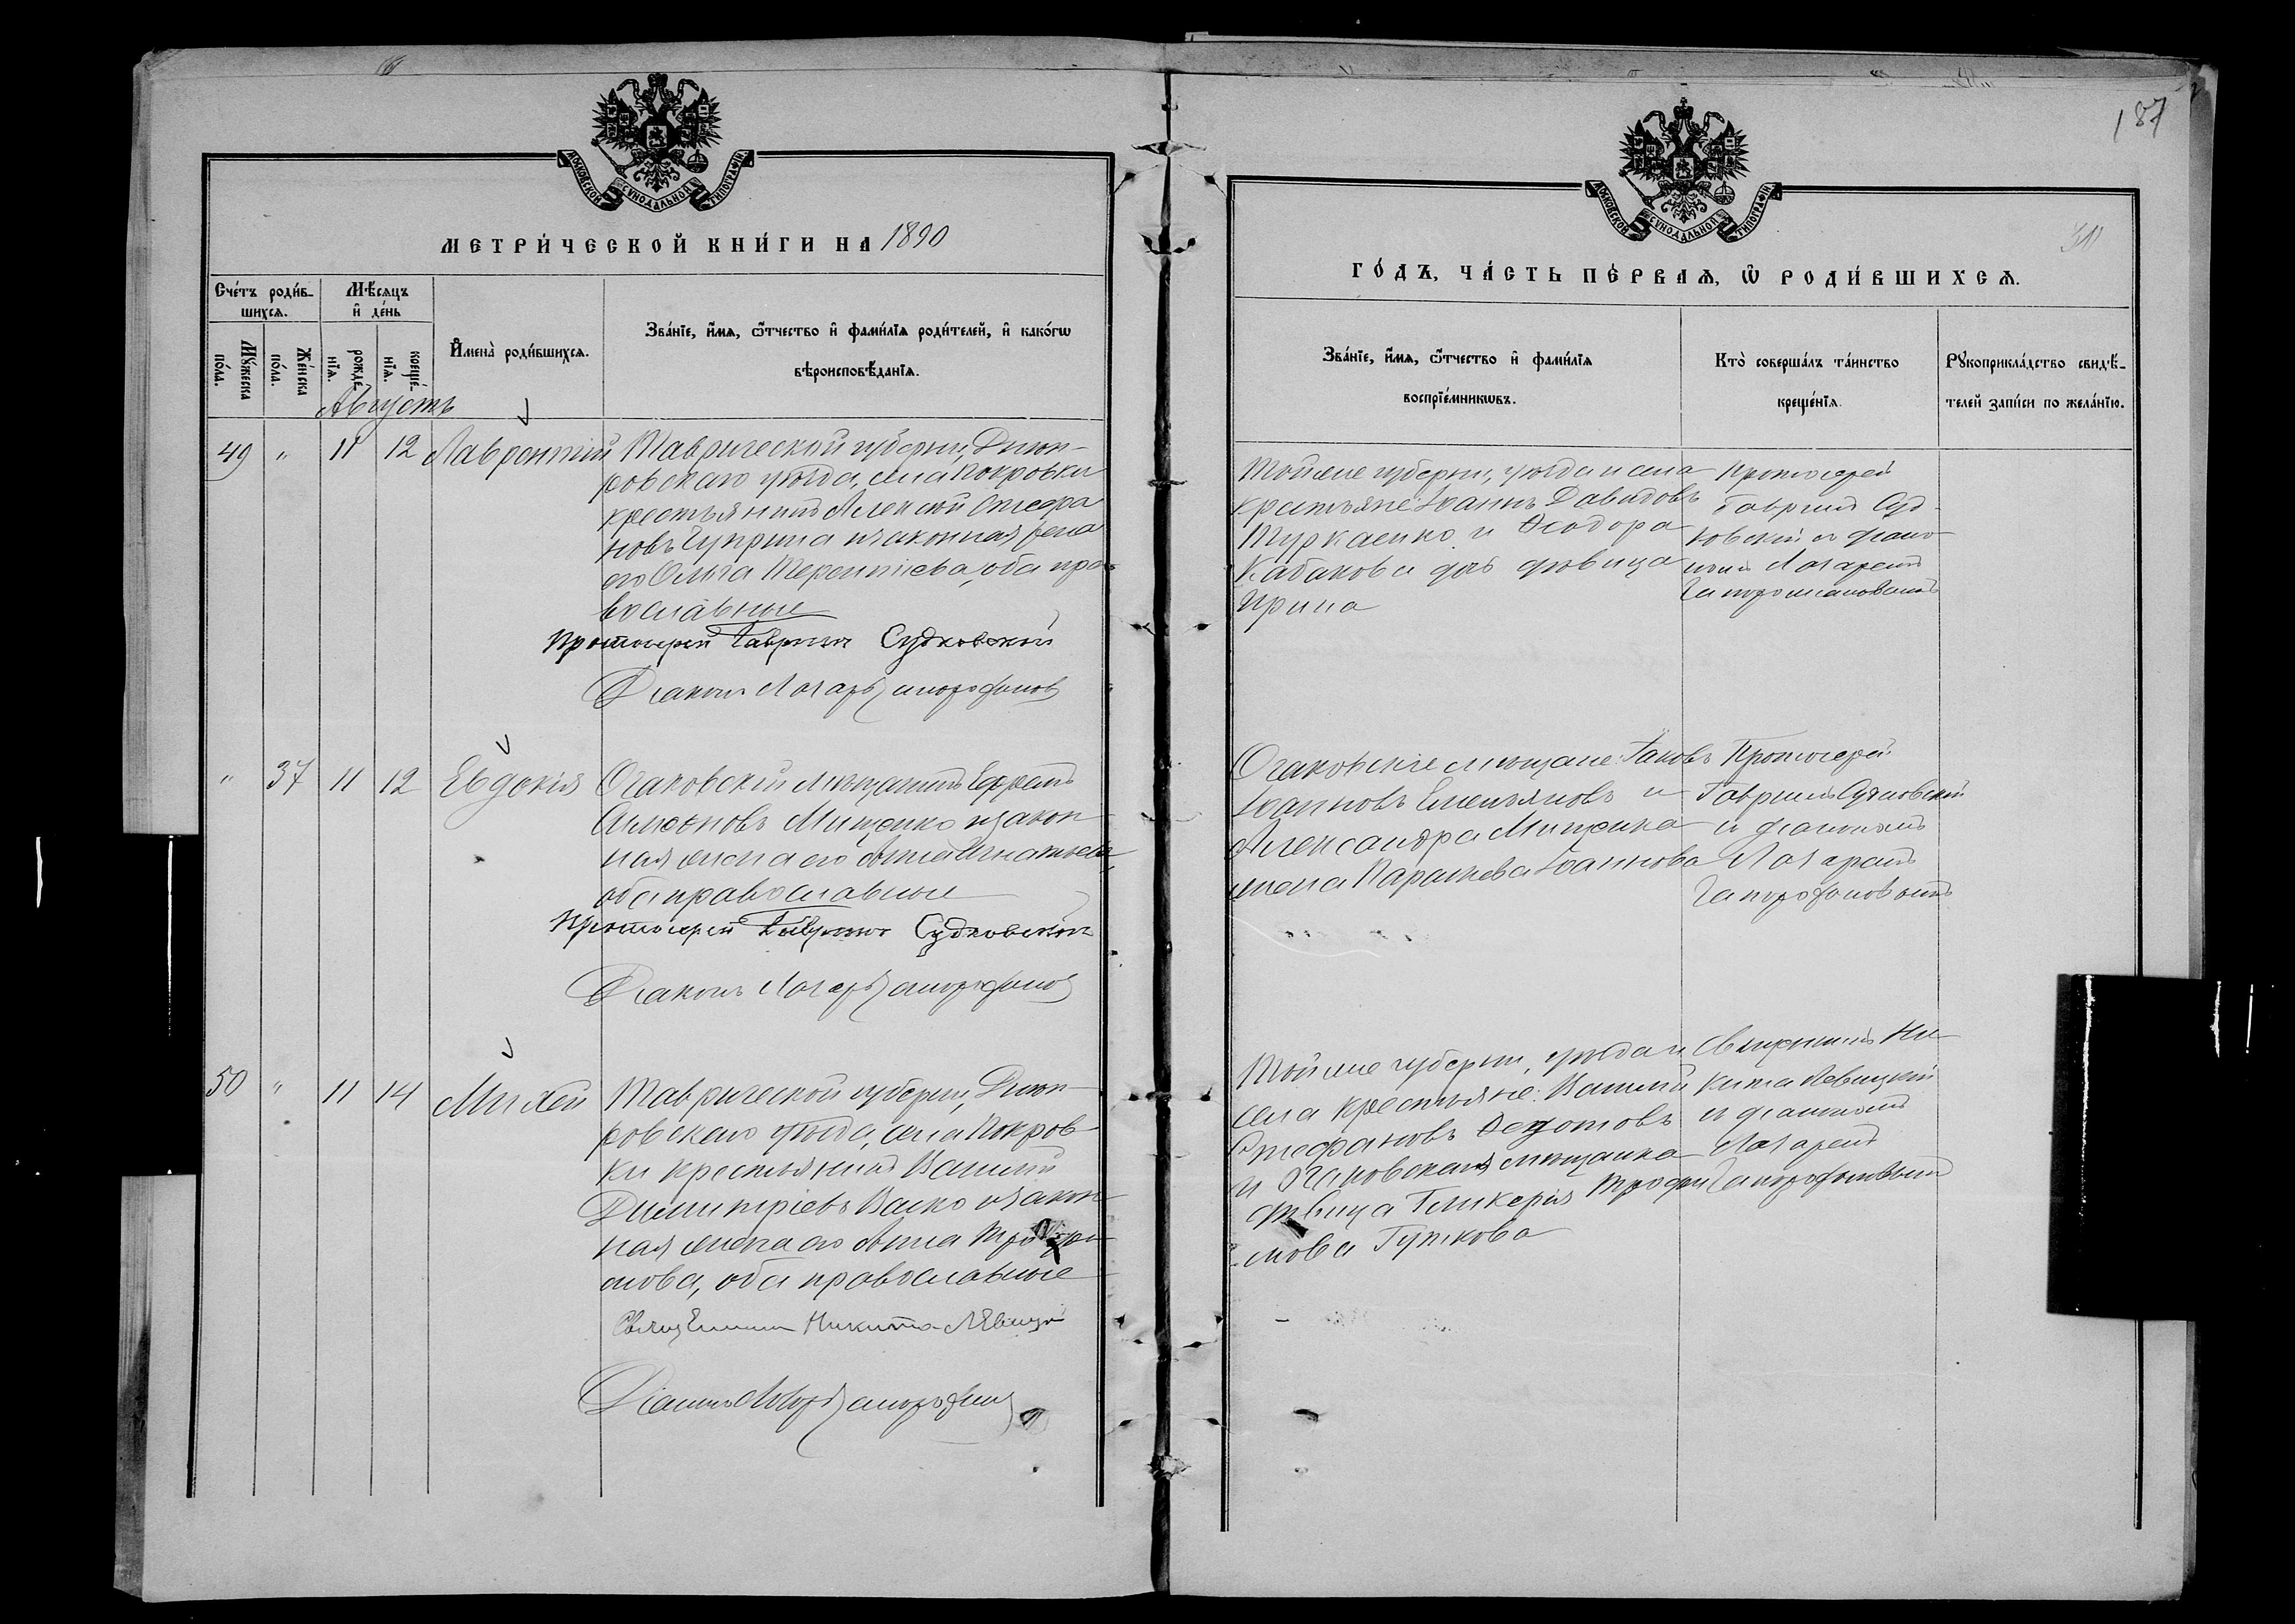 187
МОСКОВСКОЙ СѴНОДАЛЬНОЙ ТИПОГРАФІИ.
МЕТРИ́ЧЕСКОЙ КНИ́ГИ НА 1890
Сче́тъ роди́в-
шихсѧ.
Мѣ́сѧцъ
и҆ де́нь
Мꙋ́жеска
по́ла.
Же́нска
по́ла.
рожде́-
нїѧ.
креще́-
нїѧ.
И҆мена̀ роди́вшихсѧ.
Зва́нїе, и҆́мѧ, ѻ҆́тчество и҆ фами́лїѧ роди́телей, и҆ како́гѡ
вѣроисповѣ́данїѧ.
Августъ
49 " 11 12 Лаврентій Таврической губерніи, Днѣп-
ровскаго уѣзда, села Покровки
крестьянинъ Алексѣй Стефа
новъ Чуприна и законная жена
его Ольга Терентіева, оба пра-
вославные
Протоіерей Гавріилъ Судковскій
Діаконъ Лазарь
" 37 11 12 Евдокія Очаковскій мѣщанинъ
Мищенко и закон
ная жена его Анна Игнатьева,
оба православные
Протоіерей Гавріилъ Судковскій
Діаконъ Лазарь
50 " 11 14 Михей Таврической губерніи, Днѣп-
ровскаго уѣзда, села Покров-
ки крестьянинъ Василій
Димитріевъ Васко и закон-
ная жена его Анна
мова, оба православные
Священникъ Никита Левицкій
Діаконъ Лазарь
МОСКОВСКОЙ СѴНОДАЛЬНОЙ ТИПОГРАФІИ.
ГО́ДЪ, ЧА́СТЬ ПЕ́РВАѦ, Ѽ РОДИ́ВШИХСѦ.
Зва́нїе, и҆́мѧ, ѻ҆́тчество и҆ фами́лїѧ
воспрїе́мникѡвъ.
Кто̀ соверша́лъ та́инство
креще́нїѧ.
Рꙋкоприкла́дство свидѣ́-
телей за́писи по жела́нїю.
Тойже губерніи, уѣзда и села
крестьяне: Іоаннъ Давидовъ
и Ѳеодора
дѣвица
Ирина
Протоіерей
Гавріилъ Суд-
ковскій съ діако-
номъ Лазаремъ
Очаковскіе мѣщане: Іаковъ
Іоанновъ Емельяновъ и
Александра Мищенка
жена Параскева Іоаннова
Протоіерей
Гавріилъ Судковскій
съ діакономъ
Лазаремъ
Тойже губерніи, уѣзда и
села крестьяне: Василій
Стефановъ Ѳедотовъ
и Очаковская мѣщанка
дѣвица Гликерія Трофи
мова Гуткова
Священникъ Ни-
кита Левицкій
съ діакономъ
Лазаремъ